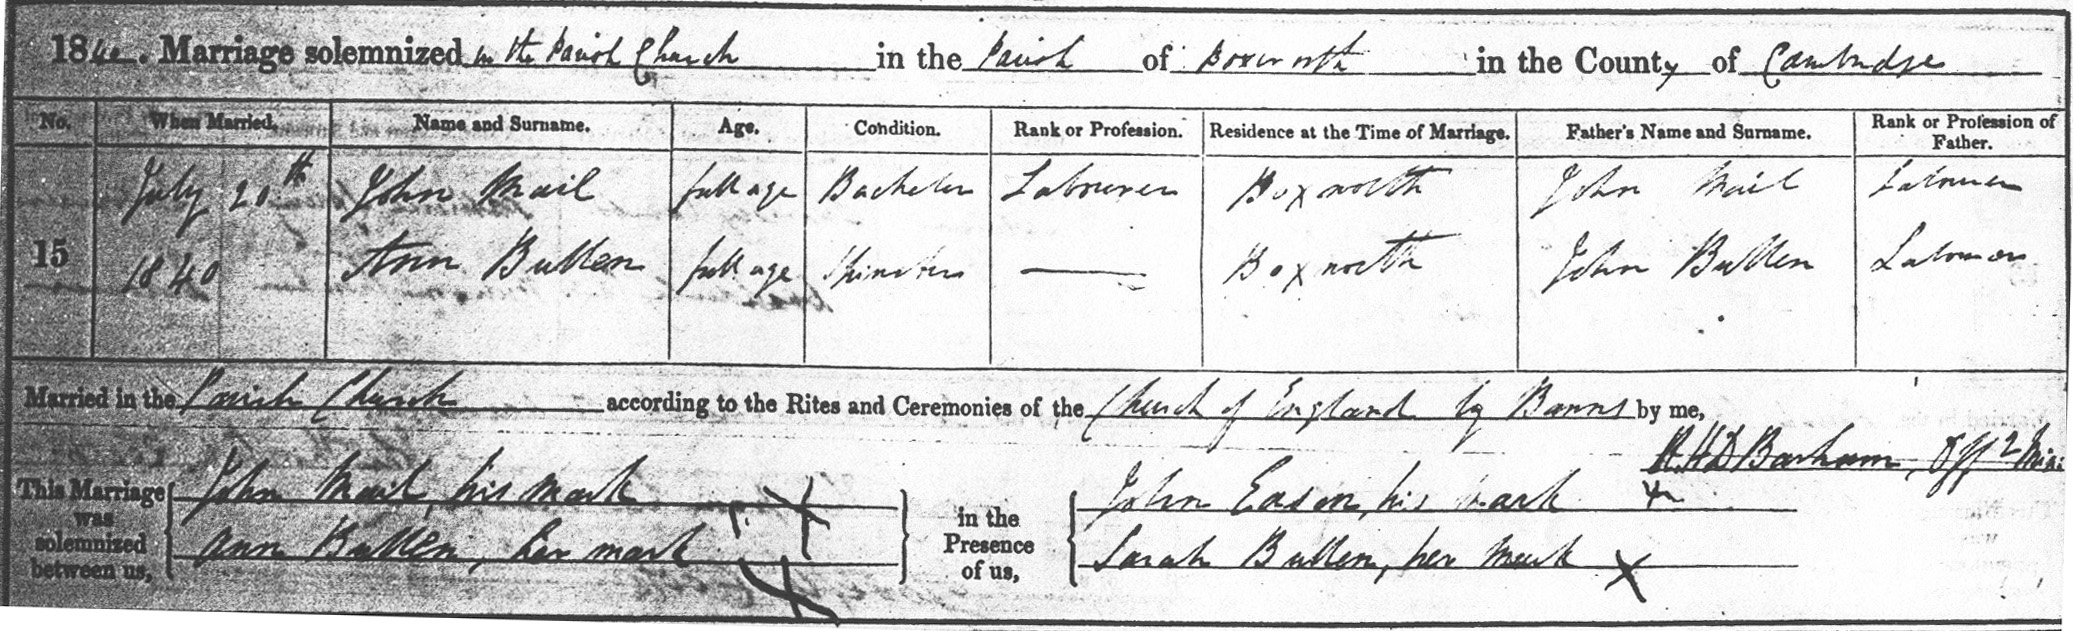 1840. Marriage solemnized in the Parish Church in the Parish of Boxworth in the County of Cambridge
No. When Married. Name and Surname. Age. Condition. Rank or Profession. Residence at the Time of Marriage. Father's Name and Surname. Rank or Profession of Father.
July 20th John Mail full age Bachelor Labourer Boxworth John Mail Labourer
15 1840 Ann Bullen full age Spinster — Boxworth John Bullen Labourer
Married in the Parish Church according to the Rites and Ceremonies of the Church of England by Banns by me,
R.H.D. Barham, Offg Mini
This Marriage was solemnized between us, John Mail, his mark X in the Presence of us, John Eason, his mark X
Ann Bullen, her mark X Sarah Bullen, her mark X